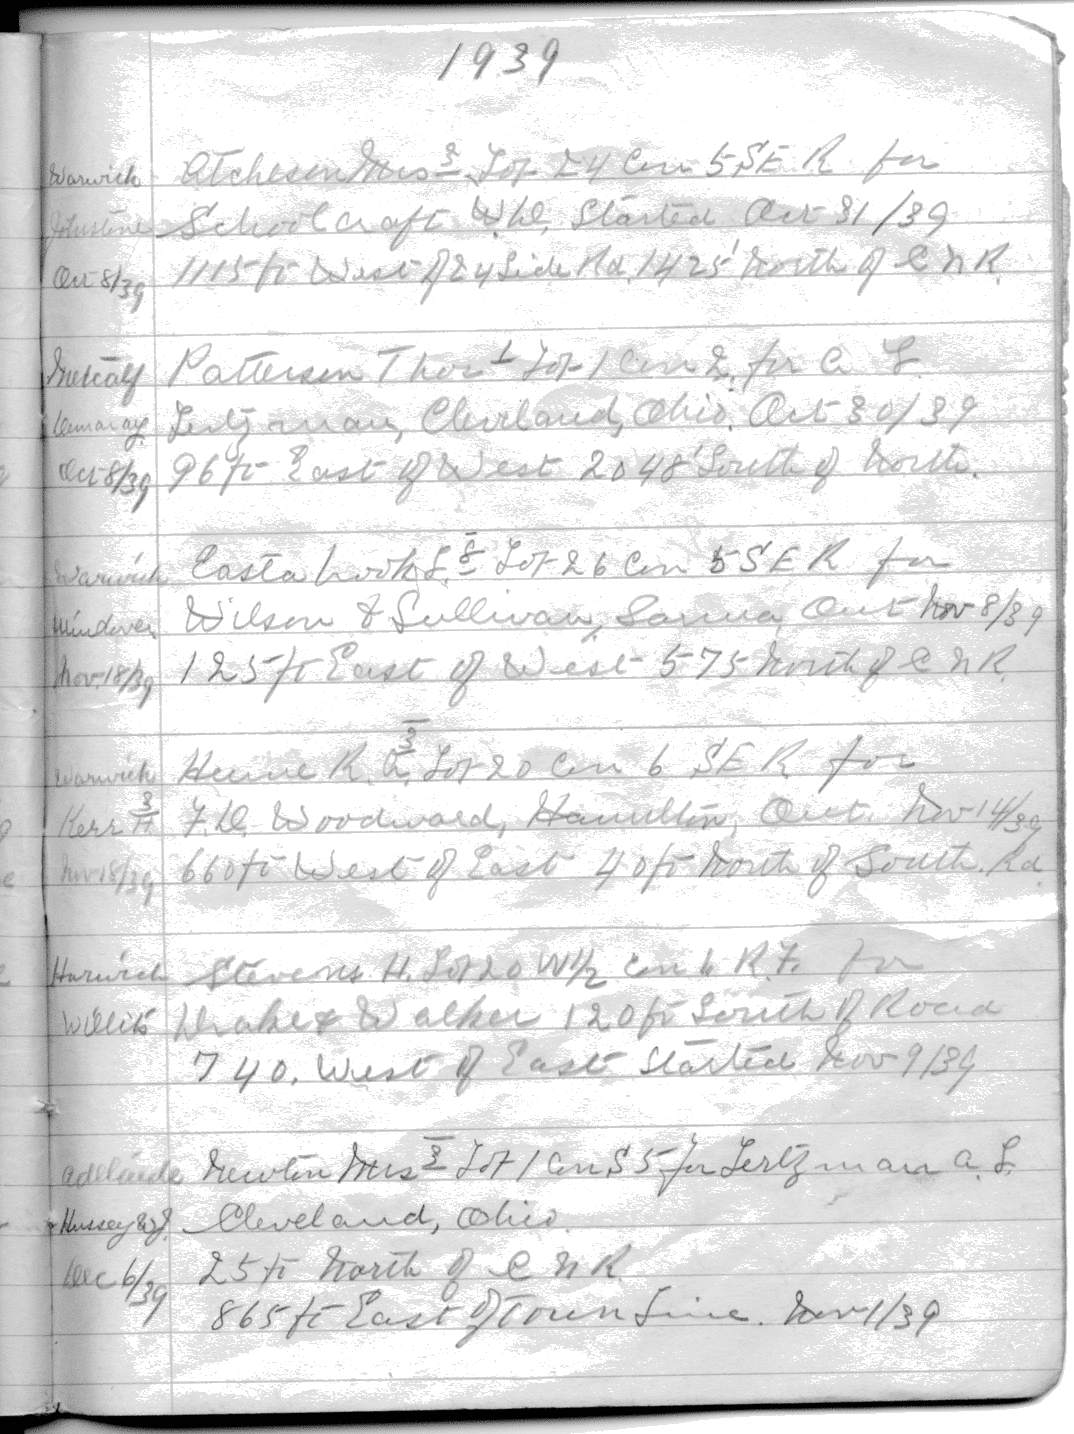 1939
Warwick Atcheson Mrs 3 Lot 24 Con 5 S E R for
Johnstone Schoolcraft W.D. Started Oct 31/39
Oct 8/39 1115 ft West of 24 Side Rd 1425' North of C N R.
Metcalf Patterson Thos 1 Lot 1 Con 2, for A. L.
Demaray Lertzman, Cleveland, Ohio. Oct 30/39
Oct 8/39 96 ft East of West 2048' South of North.
Warwick Eastabrook L. 8 Lot 26 Con 5 S E R for
Windover Wilson & Sullivan, Sarnia, Ont Nov 8/39
Nov. 18/39 125 ft East of West 575 North of C N R.
Warwick Hume R. A. 3 Lot 20 Con 6 S E R for
Kerr H. 3 F. D. Woodward, Hamilton, Ont. Nov 14/39
Nov 18/39 660 ft West of East 40 ft North of South. Rd.
Harwich Stevens H. Lot 20 W 1/2 Con 6 R. F. for
Willits Drake & Walker 120 ft South of Road
740. West of East Started Nov 9/39
Adelaide Newton Mrs 3 Lot 1 Con S 5 for Lertzman A. L.
Hussey W J. Cleveland, Ohio.
Dec 6/39 25 ft North of C N R
865 ft East of Town Line. Nov 1/39